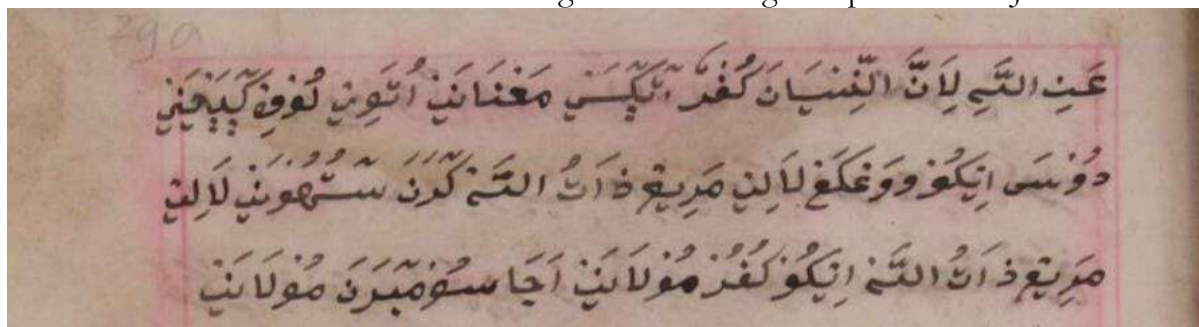 29a
عَنِ اللّٰهِ لِاَنَّ النِّسْيَانَ كُفْرٌ مَعْنَانَيْ اُتَوِيْ لُوْفِ
دُوْسَى اِيكُوْ وَوْڠكَڠ لَالِيْ مَرِيڠ ذَاتُ اللّٰه كَرَنَ سَتُهُوْنَيْ لَالِيْ
مَرِيڠ ذَاتُ اللّٰه اِيكُوْ كُفُرْ مُوْلَانَيْ اَجَا سُوْمبَرَنَ مُوْلَانَيْ